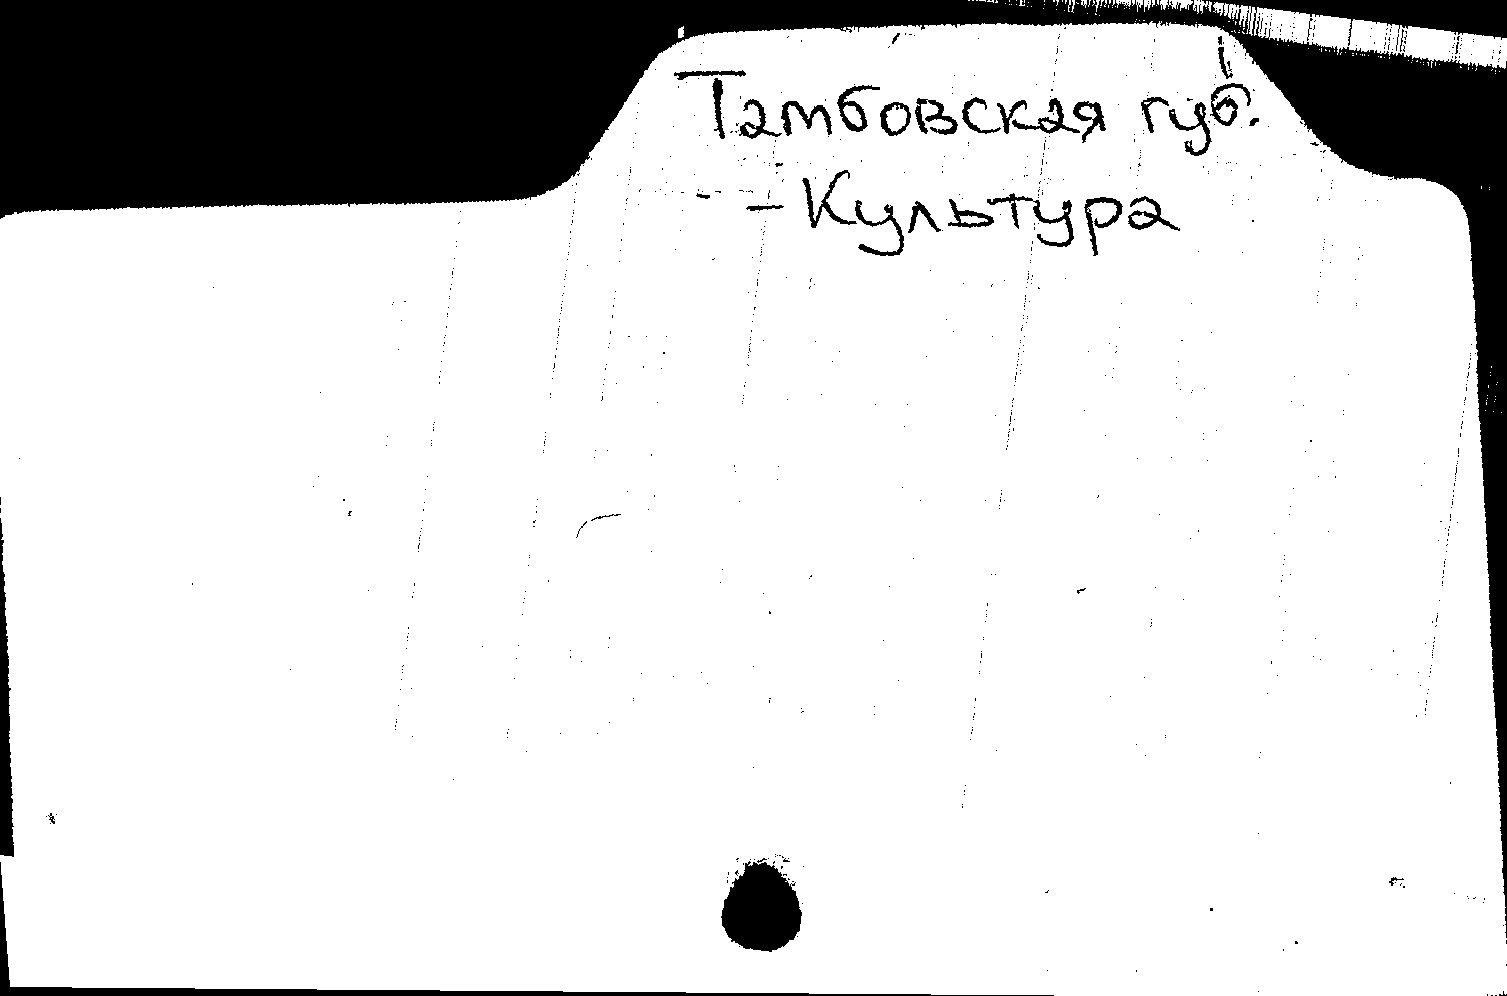 Тамбовская губ.
- Культура